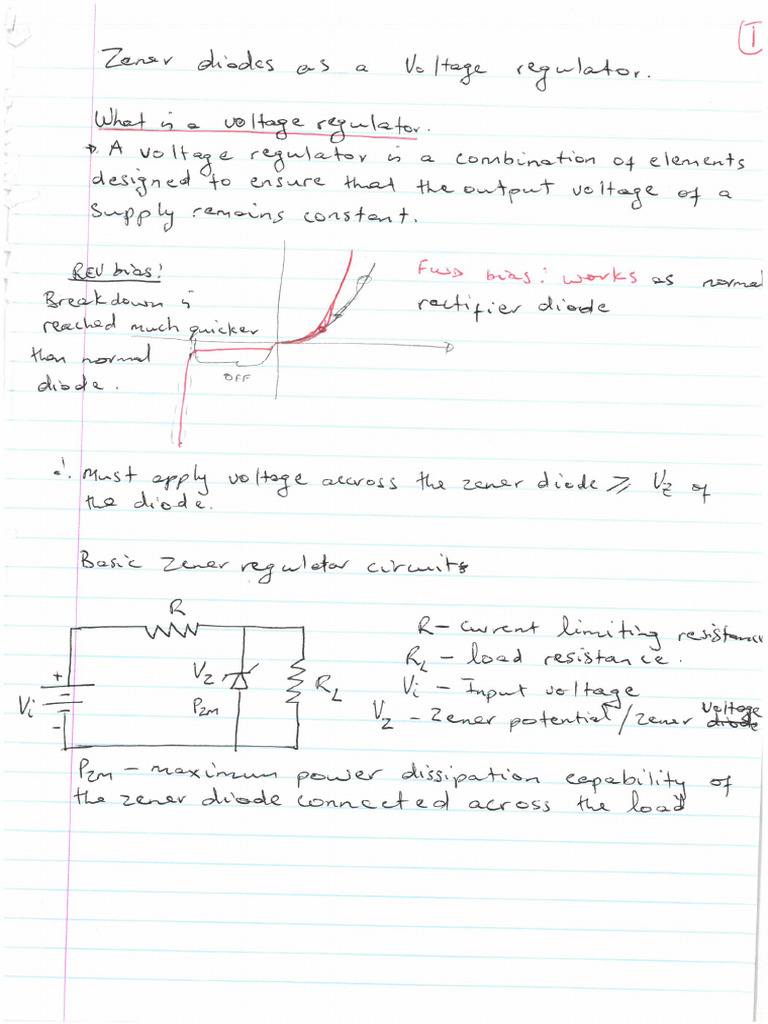 1
Zener diodes as a Voltage regulator.
What is a voltage regulator.
A voltage regulator is a combination of elements
designed to ensure that the output voltage of a
supply remains constant.
REV bias:
Breakdown is
reached much quicker
than normal
diode.
OFF
Fwd bias: works as normal
rectifier diode
∴ Must apply voltage accross the zener diode ⩾ VZ of
the diode.
Basic zener regulator circuits
R
Vi
+
-
VZ
PZM
RL
R - current limiting resistance
RL - load resistance.
Vi - Input voltage
VZ - Zener potential / zener voltage
PZM - maximum power dissipation capability of
the zener diode connected across the load